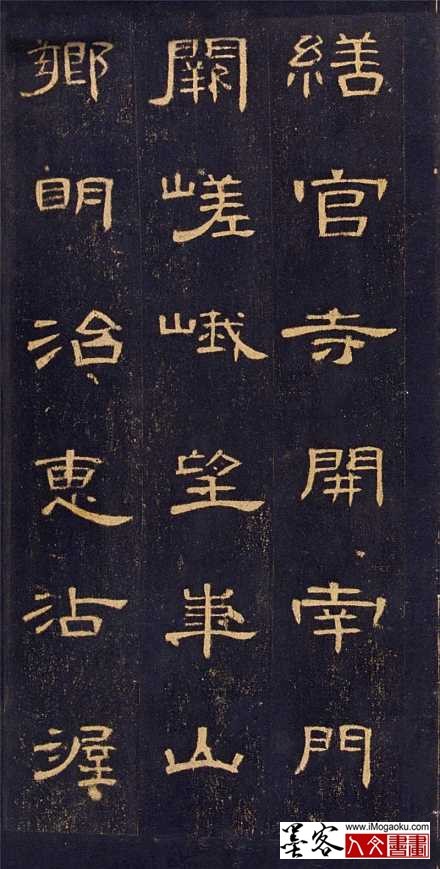 繕官寺開南門
闕嵯峨望華山
鄉明治惠沾渥
墨客 www.iMogaoku.com
人文書畫